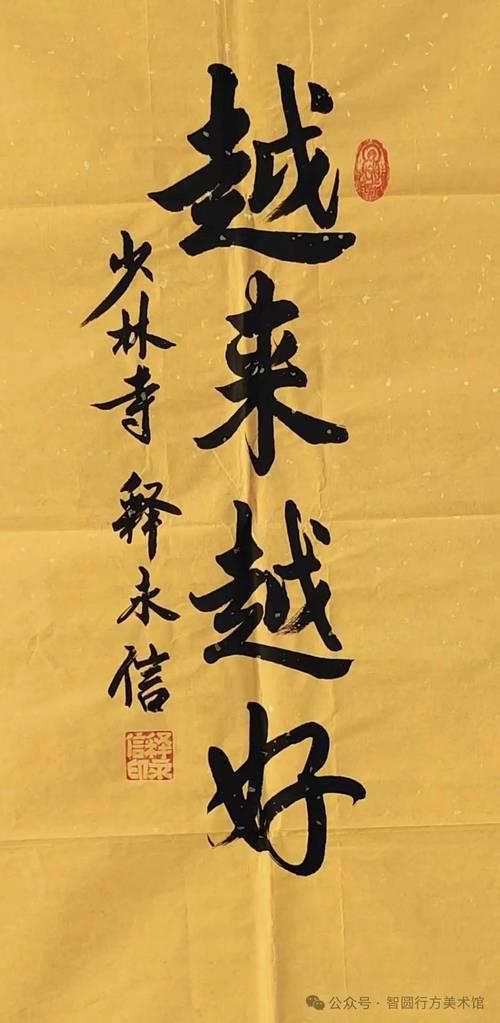 越来越好
少林寺 释永信
公众号·智圆行方美术馆